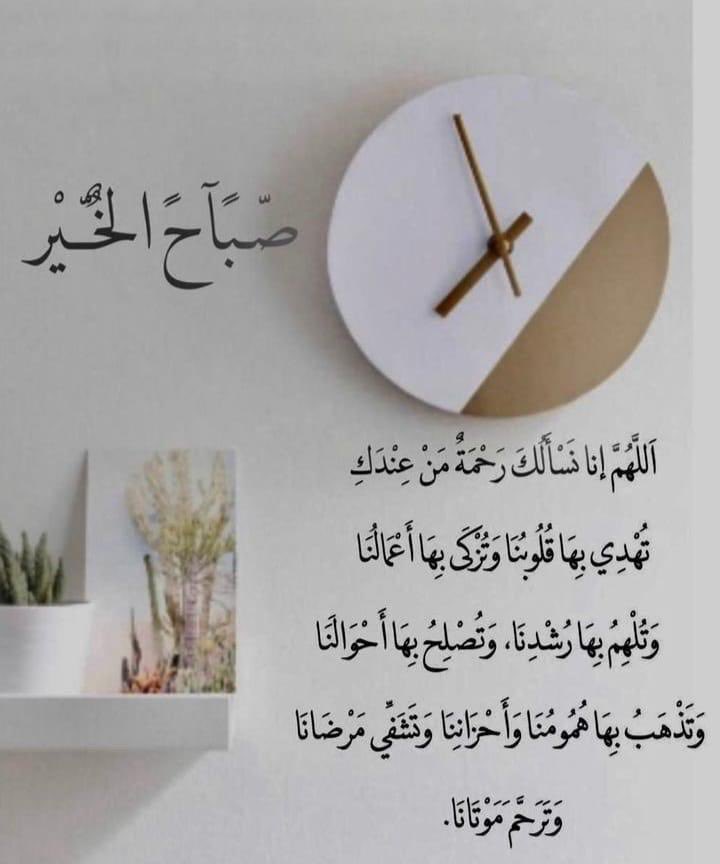 صّبًآحًا الخُيْر
اَللَّهُمَّ إنا نَسْأَلُكَ رَحْمَةٌ مَنْ عِنْدَكِ
تُهْدِي بِهَا قُلُوبُنَا وَتُزْكَى بِهَا أَعْمَالُنَا
وَتُلْهِمُ بِهَا رُشْدِنَا، وَتُصْلِحُ بِهَا أَحْوَالَنَا
وَتَذْهَبُ بِهَا هُمُومُنَا وَأَحْزَانِنَا وَتَشَفِّي مَرْضَانَا
وَتَرَحَّمَ مَوْتَانَا.